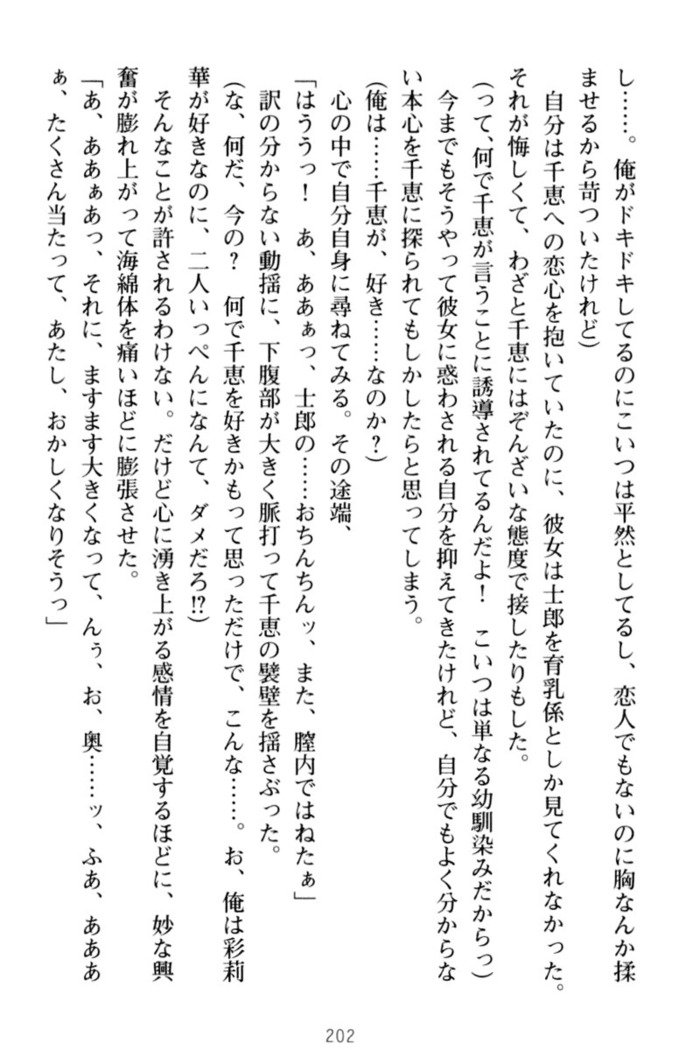 し……。俺がドキドキしてるのにこいつは平然としてるし、恋人でもないのに胸なんか揉
ませるから苛ついたけれど)
自分は千恵への恋心を抱いていたのに、彼女は士郎を育乳係としか見てくれなかった。
それが悔しくて、わざと千恵にはぞんざいな態度で接したりもした。
(って、何で千恵が言うことに誘導されてるんだよ! こいつは単なる幼馴染みだからっ)
今までもそうやって彼女に惑わされる自分を抑えてきたけれど、自分でもよく分からな
い本心を千恵に探られてもしかしたらと思ってしまう。
(俺は……千恵が、好き……なのか?)
心の中で自分自身に尋ねてみる。その途端、
「はううっ! あ、ああぁっ、士郎の……おちんちんッ、また、膣内ではねたぁ」
訳の分からない動揺に、下腹部が大きく脈打って千恵の襞壁を揺さぶった。
(な、何だ、今の? 何で千恵を好きかもって思っただけで、こんな……。お、俺は彩莉
華が好きなのに、二人いっぺんになんて、ダメだろ!?)
そんなことが許されるわけない。だけど心に湧き上がる感情を自覚するほどに、妙な興
奮が膨れ上がって海綿体を痛いほどに膨張させた。
「あ、ああぁあっ、それに、ますます大きくなって、んぅ、お、奥……ッ、ふあ、あああ
ぁ、たくさん当たって、あたし、おかしくなりそうっ」
202